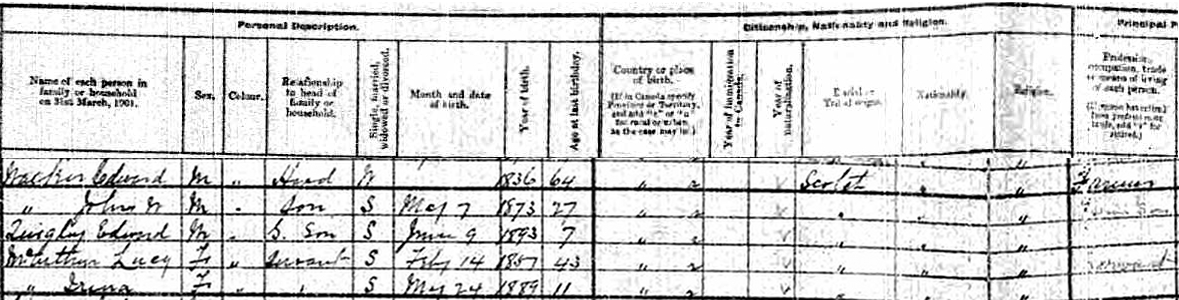 Personal Description. Citizenship, Nationality and Religion. Principal P
Name of each person in family or household on 31st March, 1901. Sex. Colour. Relationship to head of family or household. Single, married, widowed or divorced. Month and date of birth. Year of birth. Age at last birthday. Country or place of birth. (If in Canada specify Province or Territory, and add "r" or "u" for rural or urban as the case may be.) Year of immigration to Canada. Year of naturalization. Racial or Tribal origin. Nationality. Religion. Profession, occupation, trade or means of living of each person. (If person has retired from profession or trade, add "r" for retired.)
Edward M " Head W 1836 64 " r Scotch " " Farmer
" John W M " Son S May 7 1873 27 " r " " " Son
Quigley Edward M " G. Son S June 9 1893 7 " r " " "
McArthur Lucy F " Servant S Feby 14 1857 43 " r " " " Servant
" F " S May 24 1889 11 " r " " "